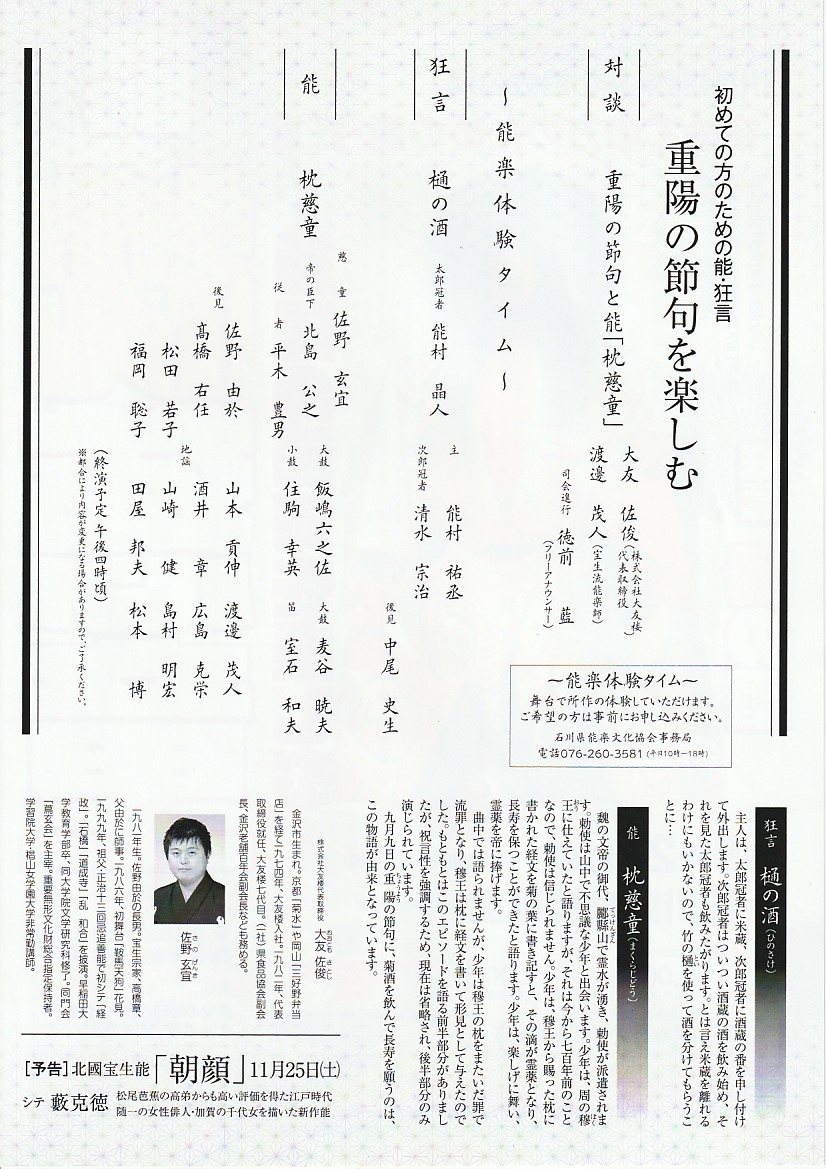 初めての方のための能・狂言
重陽の節句を楽しむ
対談
重陽の節句と能「枕慈童」
大友 佐俊(株式会社大友楼 代表取締役)
渡邊 茂人(宝生流能楽師)
司会進行 徳前 藍(フリーアナウンサー)
～能楽体験タイム～
狂言
樋の酒
太郎冠者 能村 晶人
主 能村 祐丞
次郎冠者 清水 宗治
後見 中尾 史生
能
枕慈童
慈童 佐野 玄宜
帝の臣下 北島 公之
従者 平木 豊男
大鼓 飯嶋六之佐
小鼓 住駒 幸英
太鼓 麦谷 暁夫
笛 室石 和夫
後見
佐野 由於
高橋 右任
松田 若子
福岡 聡子
地謡
山本 貢伸
酒井 章
山崎 健
田屋 邦夫
渡邊 茂人
広島 克栄
島村 明宏
松本 博
(終演予定 午後四時頃)
※都合により内容が変更になる場合がありますので、ご了承ください。
～能楽体験タイム～
舞台で所作の体験していただけます。
ご希望の方は事前にお申し込みください。
石川県能楽文化協会事務局
電話076-260-3581(平日10時－18時)
狂言 樋の酒(ひのさけ)
主人は、太郎冠者に米蔵、次郎冠者に酒蔵の番を申し付け
て外出します。次郎冠者はついつい酒蔵の酒を飲み始め、そ
れを見た太郎冠者も飲みたがります。とは言え米蔵を離れる
わけにもいかないので、竹の樋を使って酒を分けてもらうこ
とに…
能 枕慈童(まくらじどう)
魏の文帝の御代、酈縣山で霊水が湧き、勅使が派遣されま
す。勅使は山中で不思議な少年と出会います。少年は、周の穆
王に仕えていたと語りますが、それは今から七百年前のこと
なので、勅使は信じられません。少年は、穆王から賜った枕に
書かれた経文を菊の葉に書き記すと、その滴が霊薬となり、
長寿を保つことができたと語ります。少年は、楽しげに舞い、
霊薬を帝に捧げます。
曲中では語られませんが、少年は穆王の枕をまたいだ罪で
流罪となり、穆王は枕に経文を書いて形見として与えたので
した。もともとはこのエピソードを語る前半部分がありまし
たが、祝言性を強調するため、現在は省略され、後半部分のみ
演じられています。
九月九日の重陽の節句に、菊酒を飲んで長寿を願うのは、
この物語が由来となっています。
株式会社大友楼代表取締役 大友 佐俊
金沢市生まれ。京都「菊水」や岡山「三好野弁当
店」を経て一九七四年、大友楼入社。一九八二年、代表
取締役就任、大友楼七代目。(一社)県食品協会副会
長、金沢老舗百年会副会長なども務める。
佐野 玄宜
一九八一年生。佐野由於の長男。宝生宗家、高橋章、
父由於に師事。一九八六年、初舞台「鞍馬天狗」花見。
一九九九年、祖父・正治十三回忌追善能で初シテ「経
政」。「石橋」「道成寺」「乱 和合」を披演。早稲田大
学教育学部卒、同大学院文学研究科修了。同門会
「蔦玄会」を主宰。重要無形文化財総合指定保持者。
学習院大学・椙山女学園大学非常勤講師。
[予告]北國宝生能「朝顔」11月25日(土)
シテ 藪克徳
松尾芭蕉の高弟からも高い評価を得た江戸時代
随一の女性俳人・加賀の千代女を描いた新作能